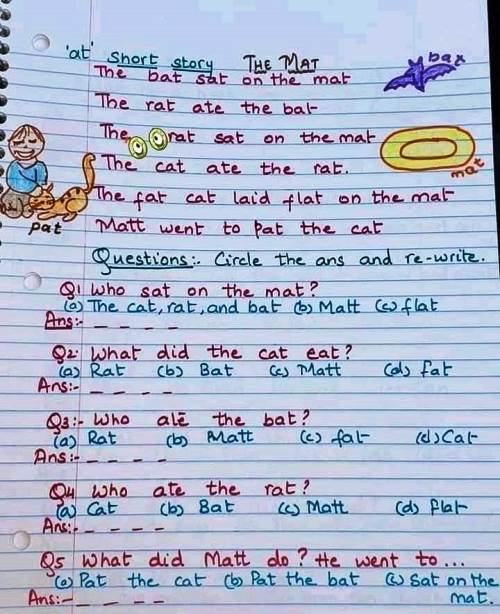 'at' Short story THE MAT
bat
The bat sat on the mat
The rat ate the bat
The rat sat on the mat
The cat ate the rat.
mat
The fat cat laid flat on the mat
pat
Matt went to pat the cat
Questions:- Circle the ans and re-write.
Q1 Who sat on the mat?
(a) The cat, rat, and bat (b) Matt (c) flat
Ans:- _ _ _ _
Q2 What did the cat eat?
(a) Rat (b) Bat (c) Matt (d) fat
Ans:- _ _ _ _
Q3:- Who ate the bat?
(a) Rat (b) Matt (c) fat (d) Cat
Ans:- _ _ _ _
Q4 Who ate the rat?
(a) Cat (b) Bat (c) Matt (d) flat
Ans:- _ _ _ _
Q5 What did Matt do? He went to ...
(a) Pat the cat (b) Pat the bat (c) Sat on the
mat.
Ans:- _ _ _ _